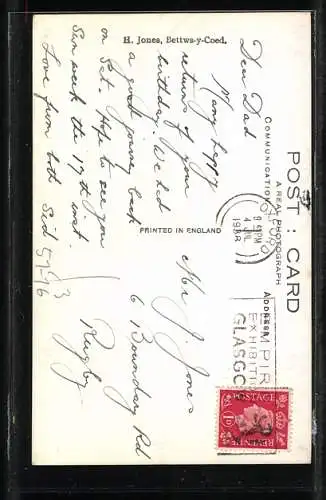 H. Jones, Bettws-y-Coed.
POST : CARD
A REAL PHOTOGRAPH
COMMUNICATION
ADDRESS
PRINTED IN ENGLAND
Dear Dad
Many happy
returns of your
birthday. We had
a good journey back
on Sat. Hope to see you
Sun week the 17th.
Love from both Sid
Mr J. Jones
6 Boundary Rd
Rugby
9 45 PM
4 JUL
1938
EMPIRE
EXHIBITION
GLASGO
POSTAGE
1D 1D
REVENUE